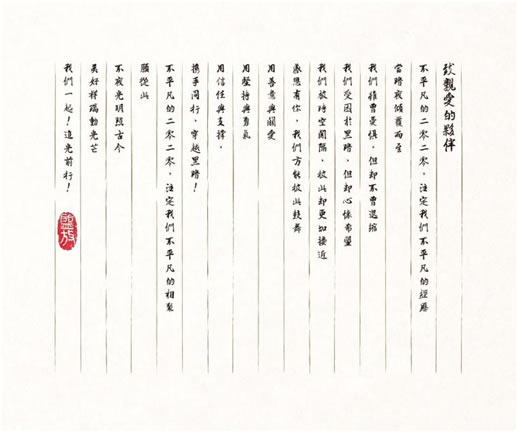 致親愛的夥伴
不平凡的二零二零，注定我們不平凡的經歷
當暗夜傾覆而至
我們雖曾憂懼，但卻不曾退縮
我們受困於黑暗，但卻心係希望
我們被時空阻隔，彼此卻更加接近
感恩有你，我們方能彼此鼓舞
用善意與關愛
用堅持與勇氣
用信任與支撐，
攜手同行，穿越黑暗！
不平凡的二零二零，注定我們不平凡的相聚
願從此
不夜光明照古今
美好祥瑞勳光芒
我們一起！追光前行！